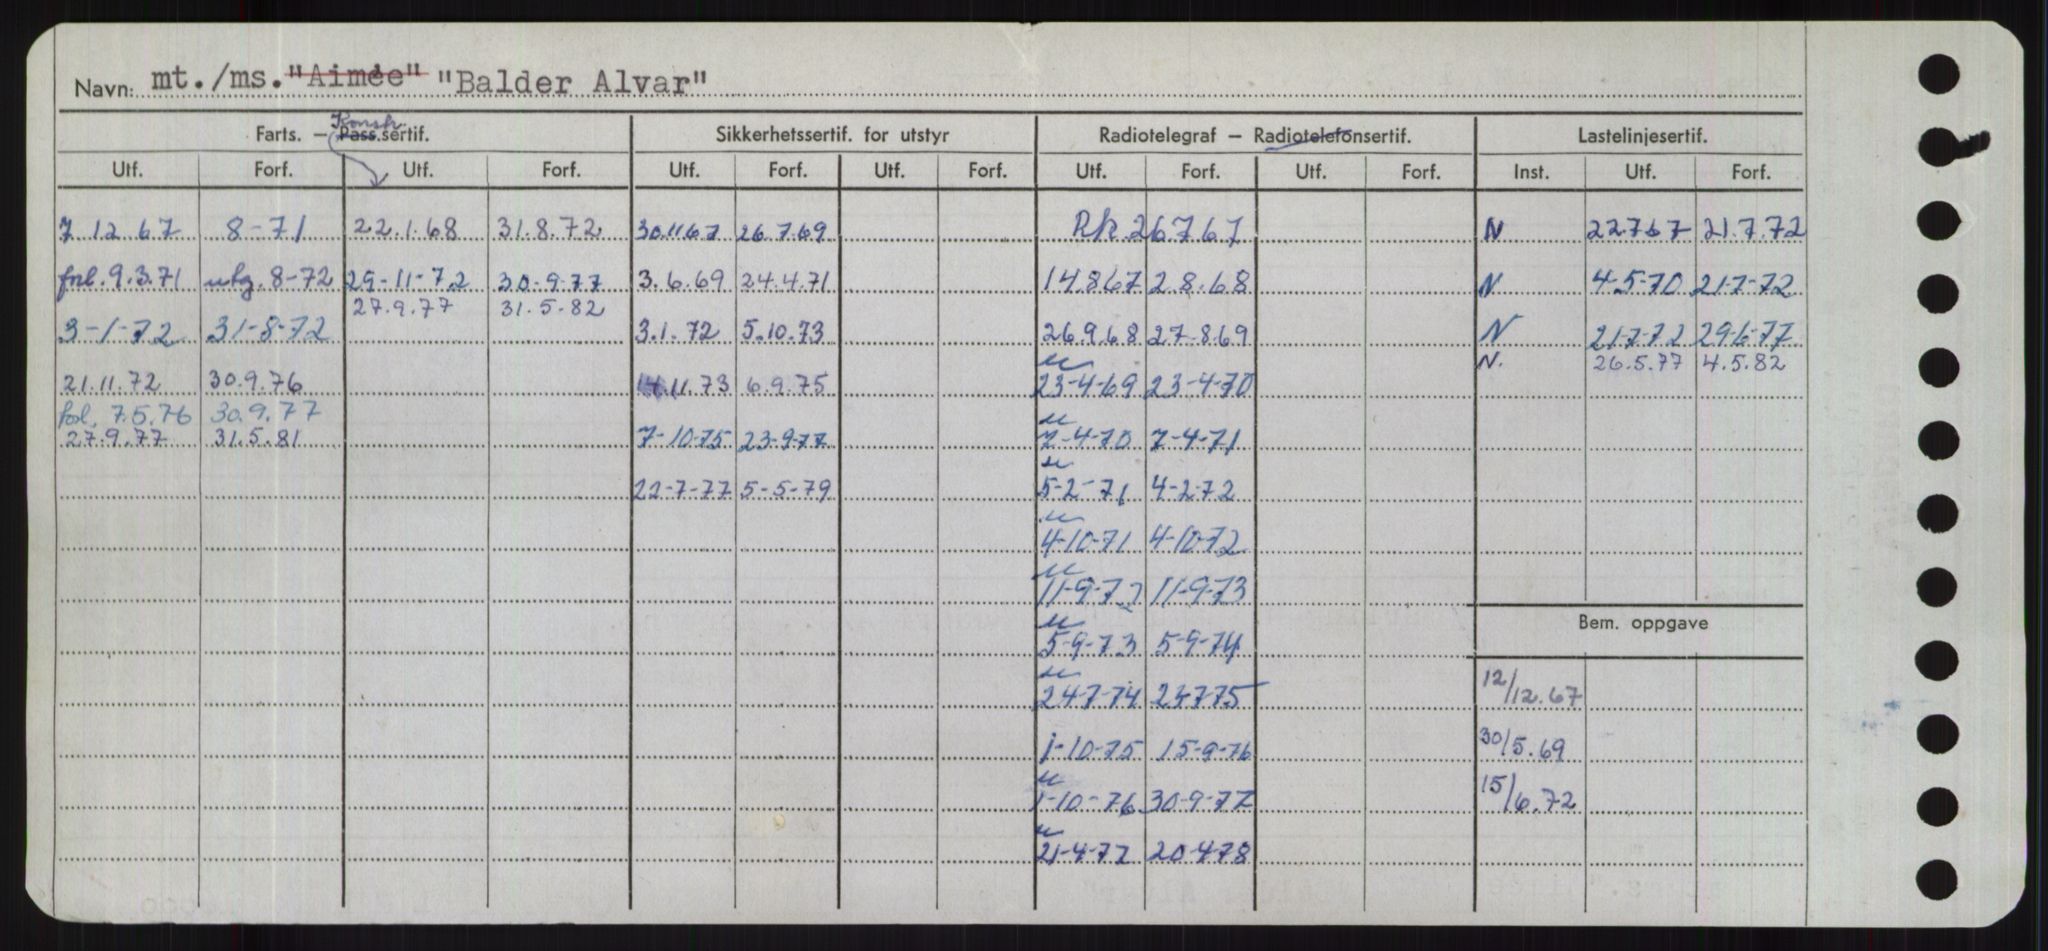 Navn: mt./ms. "Aimée" "Balder Alvar"
Konstr.
Farts. — Pass.sertif. Sikkerhetssertif. for utstyr Radiotelegraf — Radiotelefonsertif. Lastelinjesertif.
Utf. Forf. Utf. Forf. Utf. Forf. Utf. Forf. Utf. Forf. Utf. Forf. Inst. Utf. Forf.
7 12 67 8-71 22.1.68 31.8.72 30.11 67 26.7.69 Rk. 26767 N 22767 21.7.72
fnl. 9.3.71 utg. 8-72 29-11-72 30-9-77 3.6.69 24.4.71 14867 2.8.68 N 4-5-70 21-7-72
27.9.77 31.5.82
3-1-72 31-8-72 3.1.72 5.10.73 26968 27-869 N 21-7-72 29-6-77
N. 26.5.77 4.5.82
21.11.72 30.9.76 14.11.73 6.9.75 23-4-69 23-4-70
fol. 7.5.76 30.9.77
27.9.77 31.5.81 7-10-75 23-9-77 7-4-70 7-4-71
22-7-77 5-5-79 5-2-71 4-2-72
4-10-71 4-10-72
11-9-72 11-9-73
Bem. oppgave
5-9-73 5-9-74
24-7-74 23-7-75 12/12.67
1-10-75 15-9-76 30/5.69
1-10-76 30-9-77 15/6.72
21-4-77 20-4-78